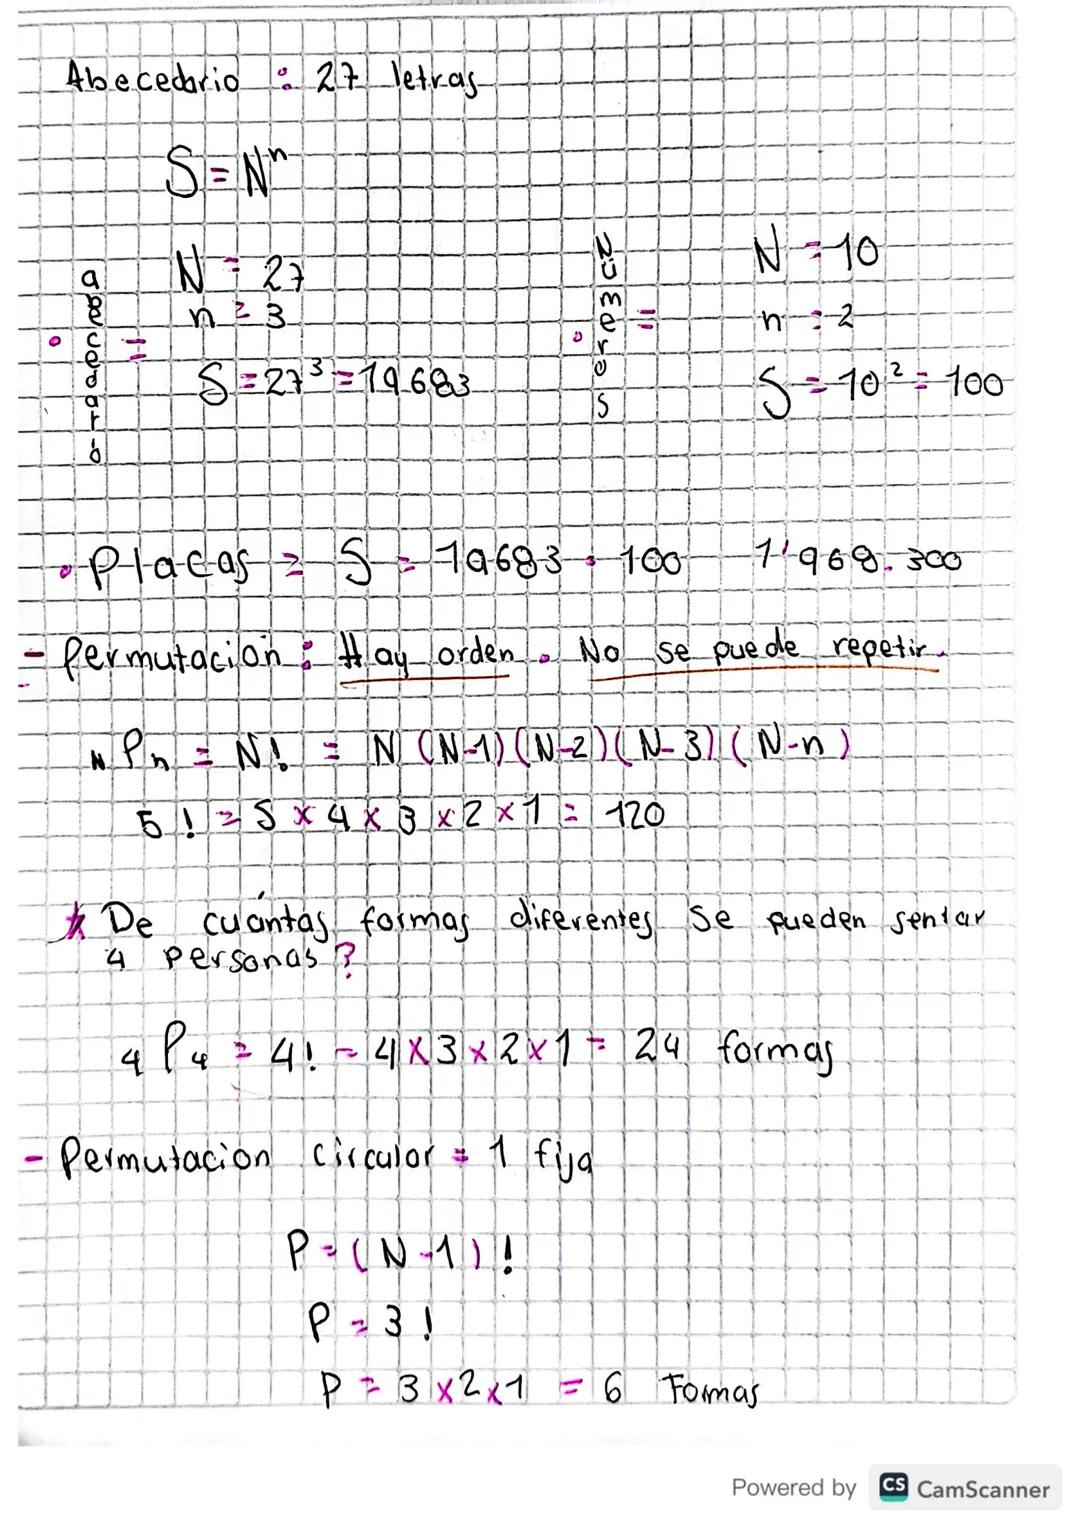 Abecedario : 27 letras
S = Nⁿ
abecedario =
N = 27
n = 3
S = 27³ = 19683
Números =
N = 10
n = 2
S = 10² = 100
• Placas = S = 19683 • 100 1'968.300
- Permutación : Hay orden. No se puede repetir.
N P n = N! = N (N-1)(N-2)(N-3)(N-n)
5! = 5 x 4 x 3 x 2 x 1 = 120
* De cuántas formas diferentes se pueden sentar
4 personas?
4 P 4 = 4! = 4 x 3 x 2 x 1 = 24 formas
- Permutacion circular = 1 fija
P = (N-1)!
P = 3!
P = 3 x 2 x 1 = 6 Formas
Powered by CS CamScanner